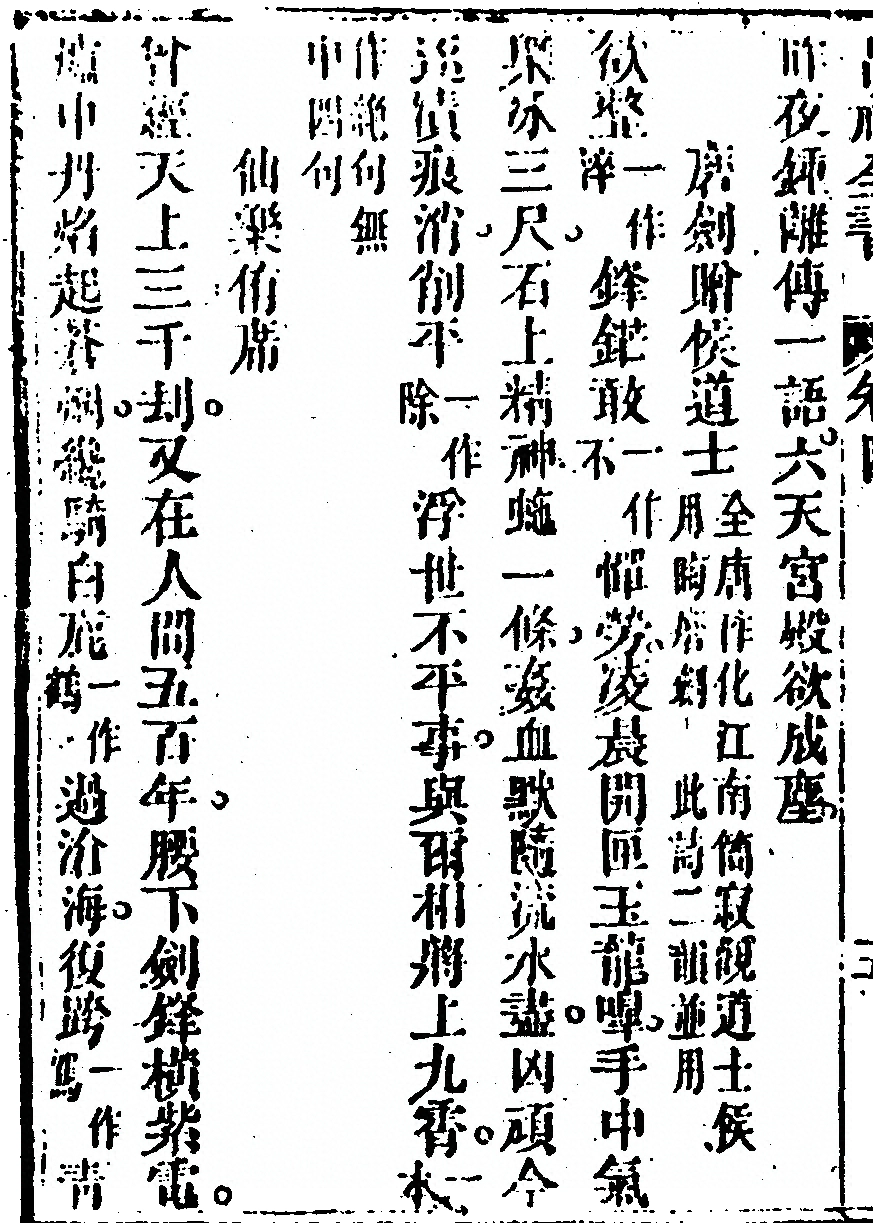 昨夜鍾離傳一語六天宮殿欲成塵
磨劍贈侯道士全唐作化江南簡寂觀道士侯用晦磨劍此詩二韻並用
欲整一作淬鋒鋩敢一作不憚勞凌晨開匣玉龍嘷手中氣
槩氷三尺石上精神蛇一條姦血默隨流水盡凶頑今
逐漬痕消削平一作除浮世不平事與爾相將上九霄一本
作絶句無中四句
仙樂侑席
曾經天上三千刦又在人間五百年腰下劍鋒橫紫電
爐中丹焰起蒼烟纔騎白鹿一作鶴過滄海復跨一作駕青